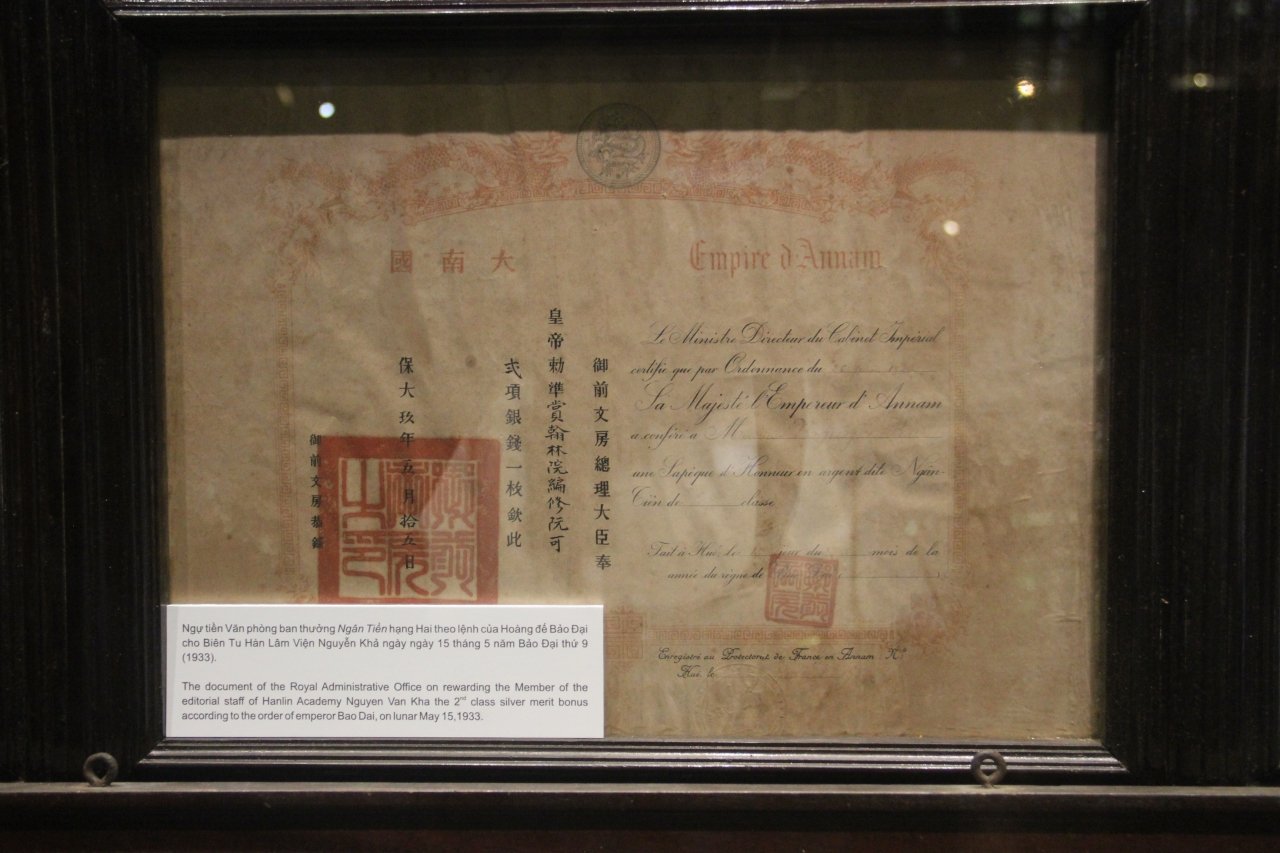 大南國
御前文房總理大臣奉
皇帝勅準賞翰林院編修阮可
弍項銀錢一枚欽此
保大玖年五月拾五日
御前文房恭錄
Empire d'Annam
Le Ministre Directeur du Cabinet Impérial
certifie que par Ordonnance du
Sa Majesté l'Empereur d'Annam
a conféré à M
une Sapèque d'Honneur en argent dite Ngân-
Tiên de classe
Fait à Hué, le jour du mois de la
année du règne de
Enregistré au Protectorat de France en Annam: N°
Hué, le
Ngự tiền Văn phòng ban thưởng Ngân Tiền hạng Hai theo lệnh của Hoàng đế Bảo Đại
cho Biên Tu Hàn Lâm Viện Nguyễn Khả ngày ngày 15 tháng 5 năm Bảo Đại thứ 9
(1933).
The document of the Royal Administrative Office on rewarding the Member of the
editorial staff of Hanlin Academy Nguyen Van Kha the 2nd class silver merit bonus
according to the order of emperor Bao Dai, on lunar May 15,1933.